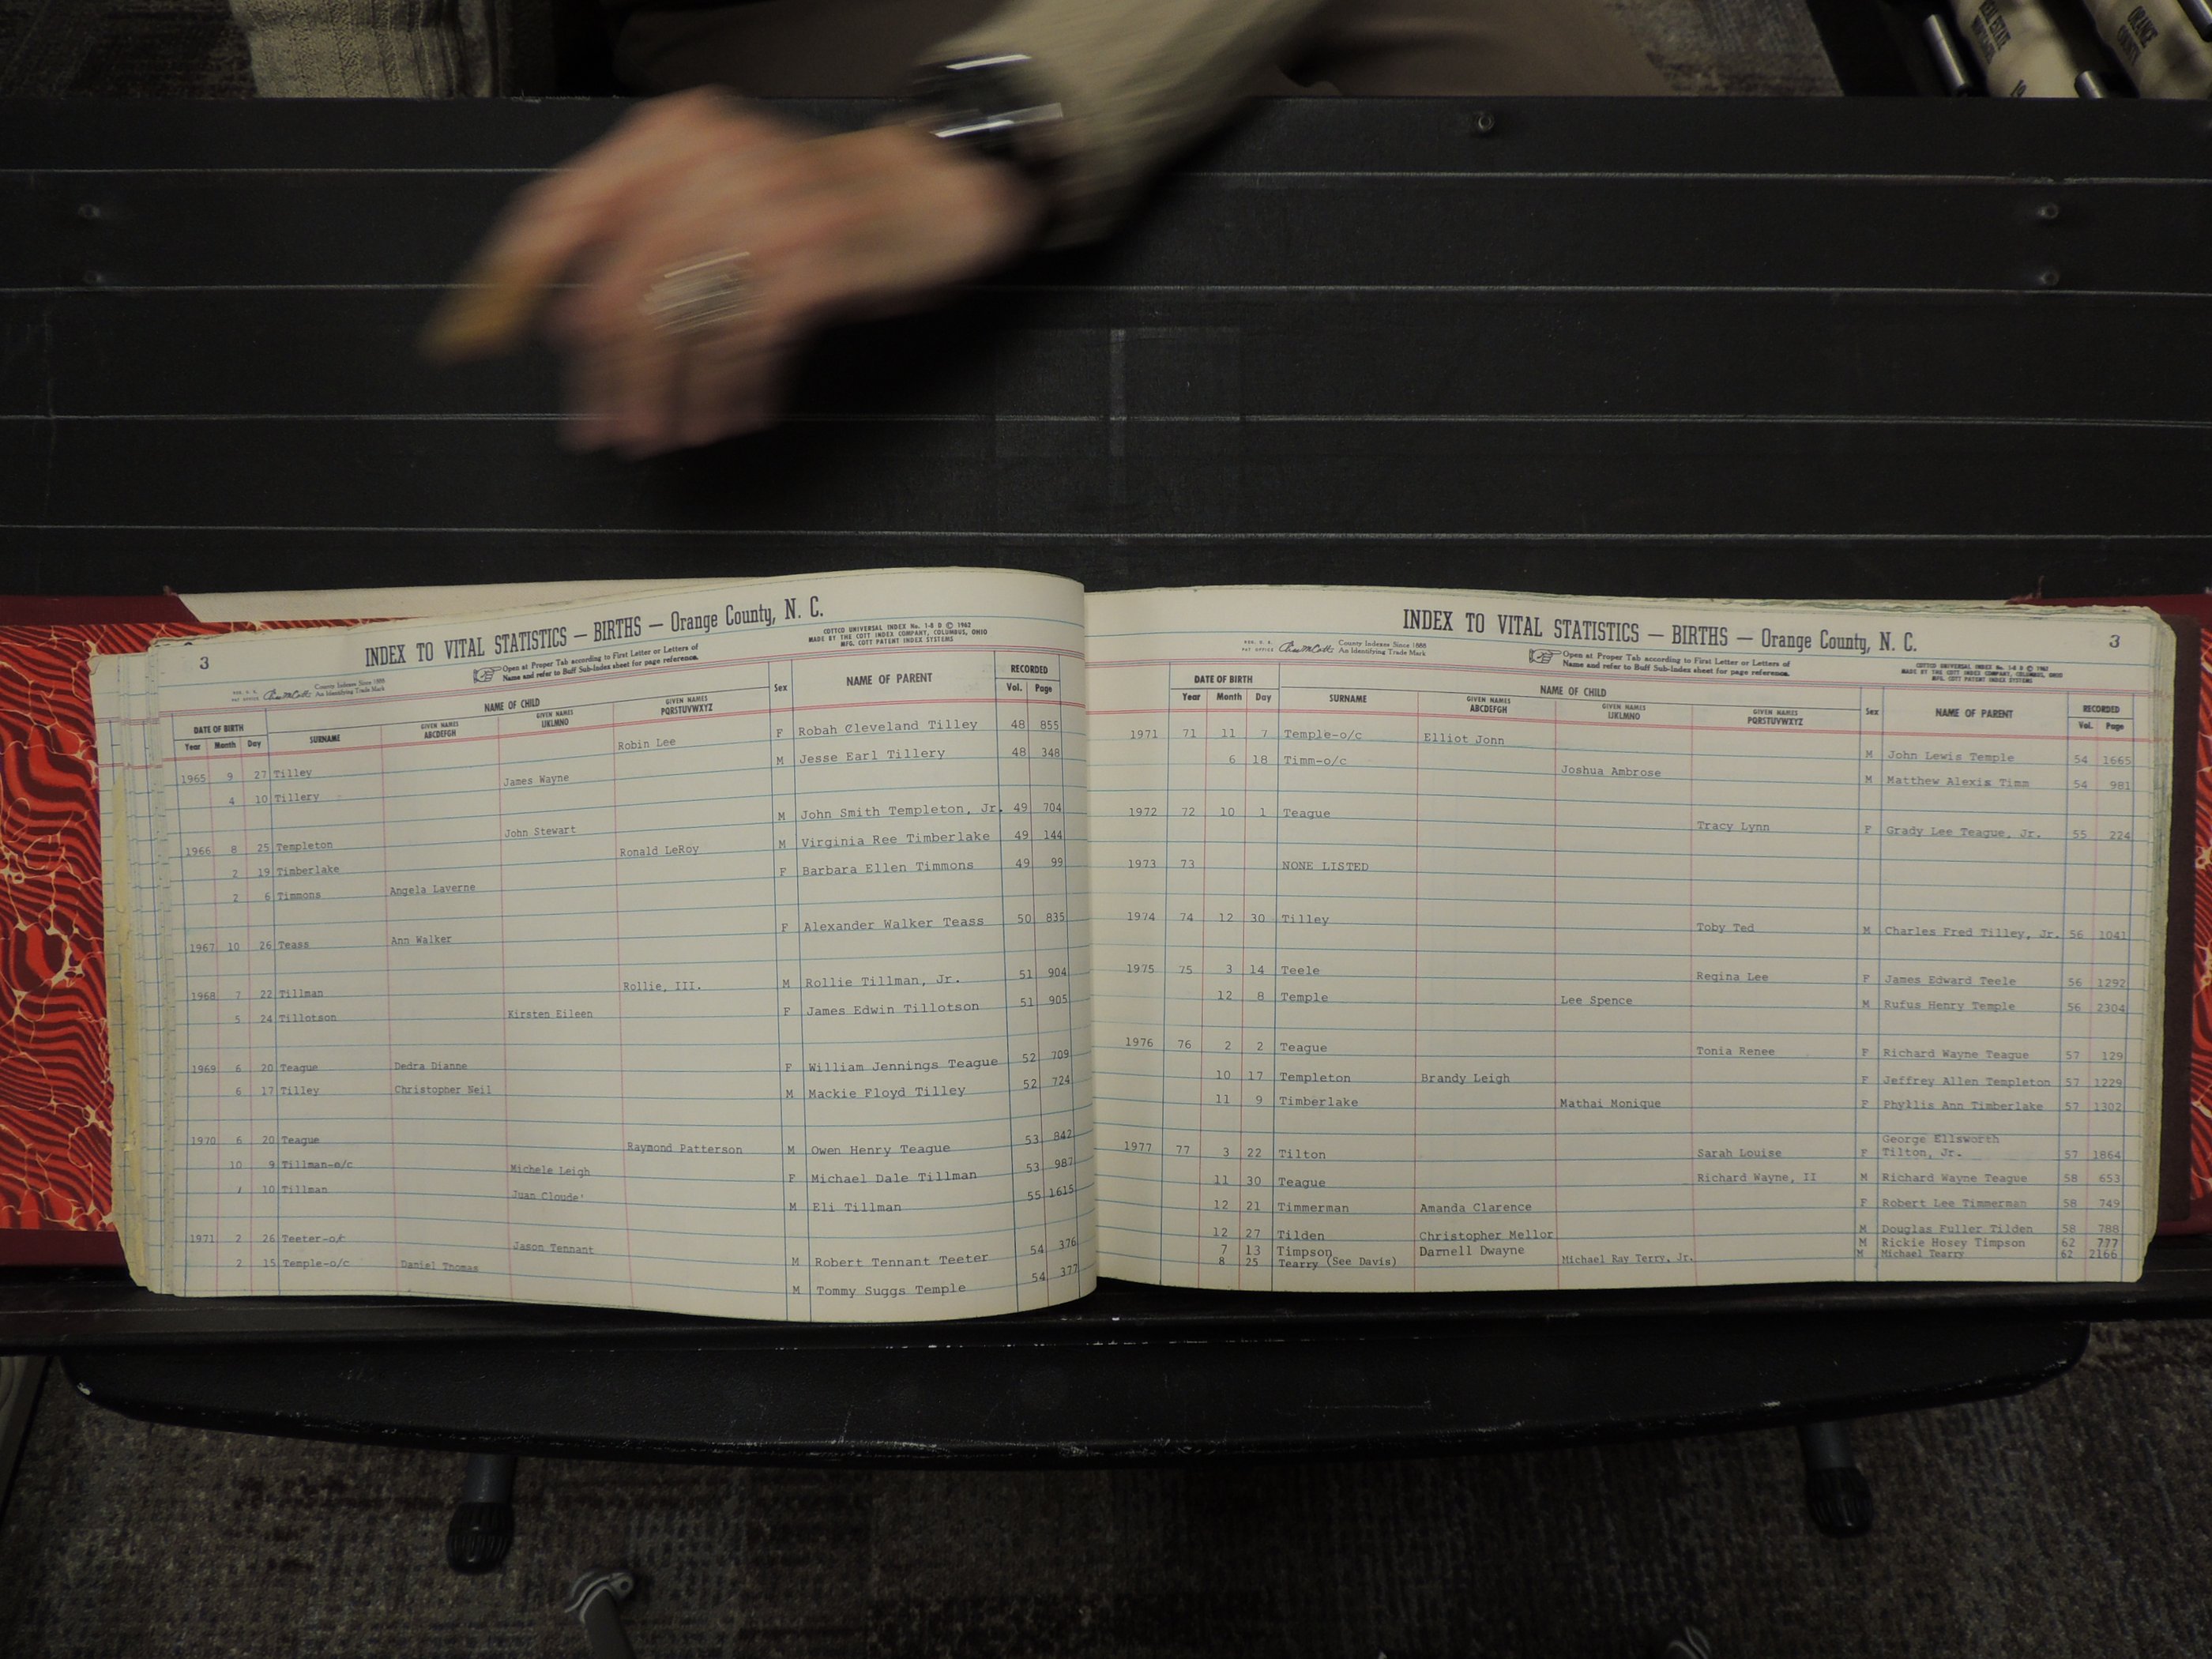 REAL ESTATE
ORANGE COUNTY
3
INDEX TO VITAL STATISTICS — BIRTHS — Orange County, N. C.
COTTCO UNIVERSAL INDEX No. 1-8 D © 1962
MADE BY THE COTT INDEX COMPANY, COLUMBUS, OHIO
MFG. COTT PATENT INDEX SYSTEMS
County Indexes Since 1888
An Identifying Trade Mark
Open at Proper Tab according to First Letter or Letters of
Name and refer to Buff Sub-Index sheet for page reference.
DATE OF BIRTH NAME OF CHILD Sex NAME OF PARENT RECORDED
Year Month Day SURNAME GIVEN NAMES ABCDEFGH GIVEN NAMES IJKLMNO GIVEN NAMES PQRSTUVWXYZ Vol. Page
1965 9 27 Tilley Robin Lee F Robah Cleveland Tilley 48 855
4 10 Tillery James Wayne M Jesse Earl Tillery 48 348
1966 8 25 Templeton John Stewart M John Smith Templeton, Jr. 49 704
2 19 Timberlake Ronald LeRoy M Virginia Ree Timberlake 49 144
2 6 Timmons Angela Laverne F Barbara Ellen Timmons 49 99
1967 10 26 Teass Ann Walker F Alexander Walker Teass 50 835
1968 7 22 Tillman Rollie, III. M Rollie Tillman, Jr. 51 904
5 24 Tillotson Kirsten Eileen F James Edwin Tillotson 51 905
1969 6 20 Teague Dedra Dianne F William Jennings Teague 52 709
6 17 Tilley Christopher Neil M Mackie Floyd Tilley 52 724
1970 6 20 Teague Raymond Patterson M Owen Henry Teague 53 842
10 9 Tillman-o/c Michele Leigh F Michael Dale Tillman 53 987
10 Tillman Juan Cloude' M Eli Tillman 55 1615
1971 2 26 Teeter-o/c Jason Tennant M Robert Tennant Teeter 54 376
2 15 Temple-o/c Daniel Thomas M Tommy Suggs Temple 54 377
INDEX TO VITAL STATISTICS — BIRTHS — Orange County, N. C.
3
County Indexes Since 1888
An Identifying Trade Mark
Open at Proper Tab according to First Letter or Letters of
Name and refer to Buff Sub-Index sheet for page reference.
COTTCO UNIVERSAL INDEX No. 1-8 D © 1962
MADE BY THE COTT INDEX COMPANY, COLUMBUS, OHIO
MFG. COTT PATENT INDEX SYSTEMS
DATE OF BIRTH NAME OF CHILD Sex NAME OF PARENT RECORDED
Year Month Day SURNAME GIVEN NAMES ABCDEFGH GIVEN NAMES IJKLMNO GIVEN NAMES PQRSTUVWXYZ Vol. Page
1971 71 11 7 Temple-o/c Elliot Jonn M John Lewis Temple 54 1665
6 18 Timm-o/c Joshua Ambrose M Matthew Alexis Timm 54 981
1972 72 10 1 Teague Tracy Lynn F Grady Lee Teague, Jr. 55 224
1973 73 NONE LISTED
1974 74 12 30 Tilley Toby Ted M Charles Fred Tilley, Jr. 56 1041
1975 75 3 14 Teele Regina Lee F James Edward Teele 56 1292
12 8 Temple Lee Spence M Rufus Henry Temple 56 2304
1976 76 2 2 Teague Tonia Renee F Richard Wayne Teague 57 129
10 17 Templeton Brandy Leigh F Jeffrey Allen Templeton 57 1229
11 9 Timberlake Mathai Monique F Phyllis Ann Timberlake 57 1302
George Ellsworth
1977 77 3 22 Tilton Sarah Louise F Tilton, Jr. 57 1864
11 30 Teague Richard Wayne, II M Richard Wayne Teague 58 653
12 21 Timmerman Amanda Clarence F Robert Lee Timmerman 58 749
12 27 Tilden Christopher Mellor M Douglas Fuller Tilden 58 788
7 13 Timpson Darnell Dwayne M Rickie Hosey Timpson 62 777
8 25 Tearry (See Davis) Michael Ray Terry, Jr. M Michael Tearry 62 2166